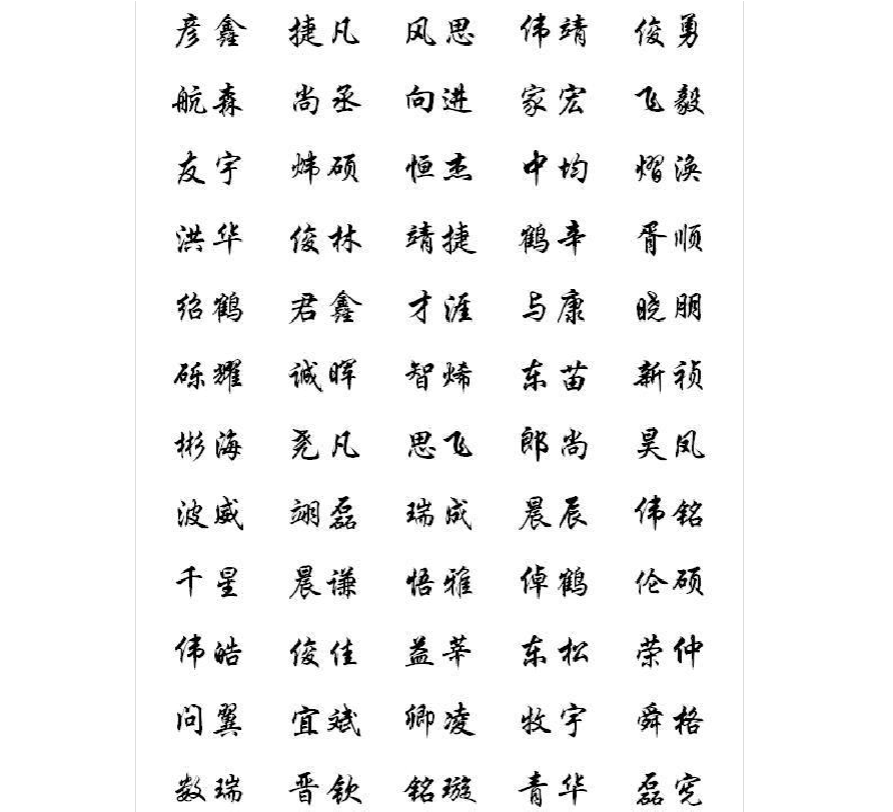 彦鑫 捷凡 风思 伟靖 俊勇
航森 尚丞 向进 家宏 飞毅
友宇 炜硕 恒杰 中均 熠涣
洪华 俊林 靖捷 鹤辛 胥顺
绍鹤 君鑫 才涯 与康 晓朋
砾耀 诚晖 智烯 东苗 新祯
彬海 尧凡 思飞 郎尚 昊凤
波威 翊磊 瑞成 晨辰 伟铭
千星 晨谦 悟雅 倬鹤 伦硕
伟皓 俊佳 益莘 东松 荣仲
问翼 宜斌 卿凌 牧宇 舜格
数瑞 晋钦 铭璇 青华 磊宪